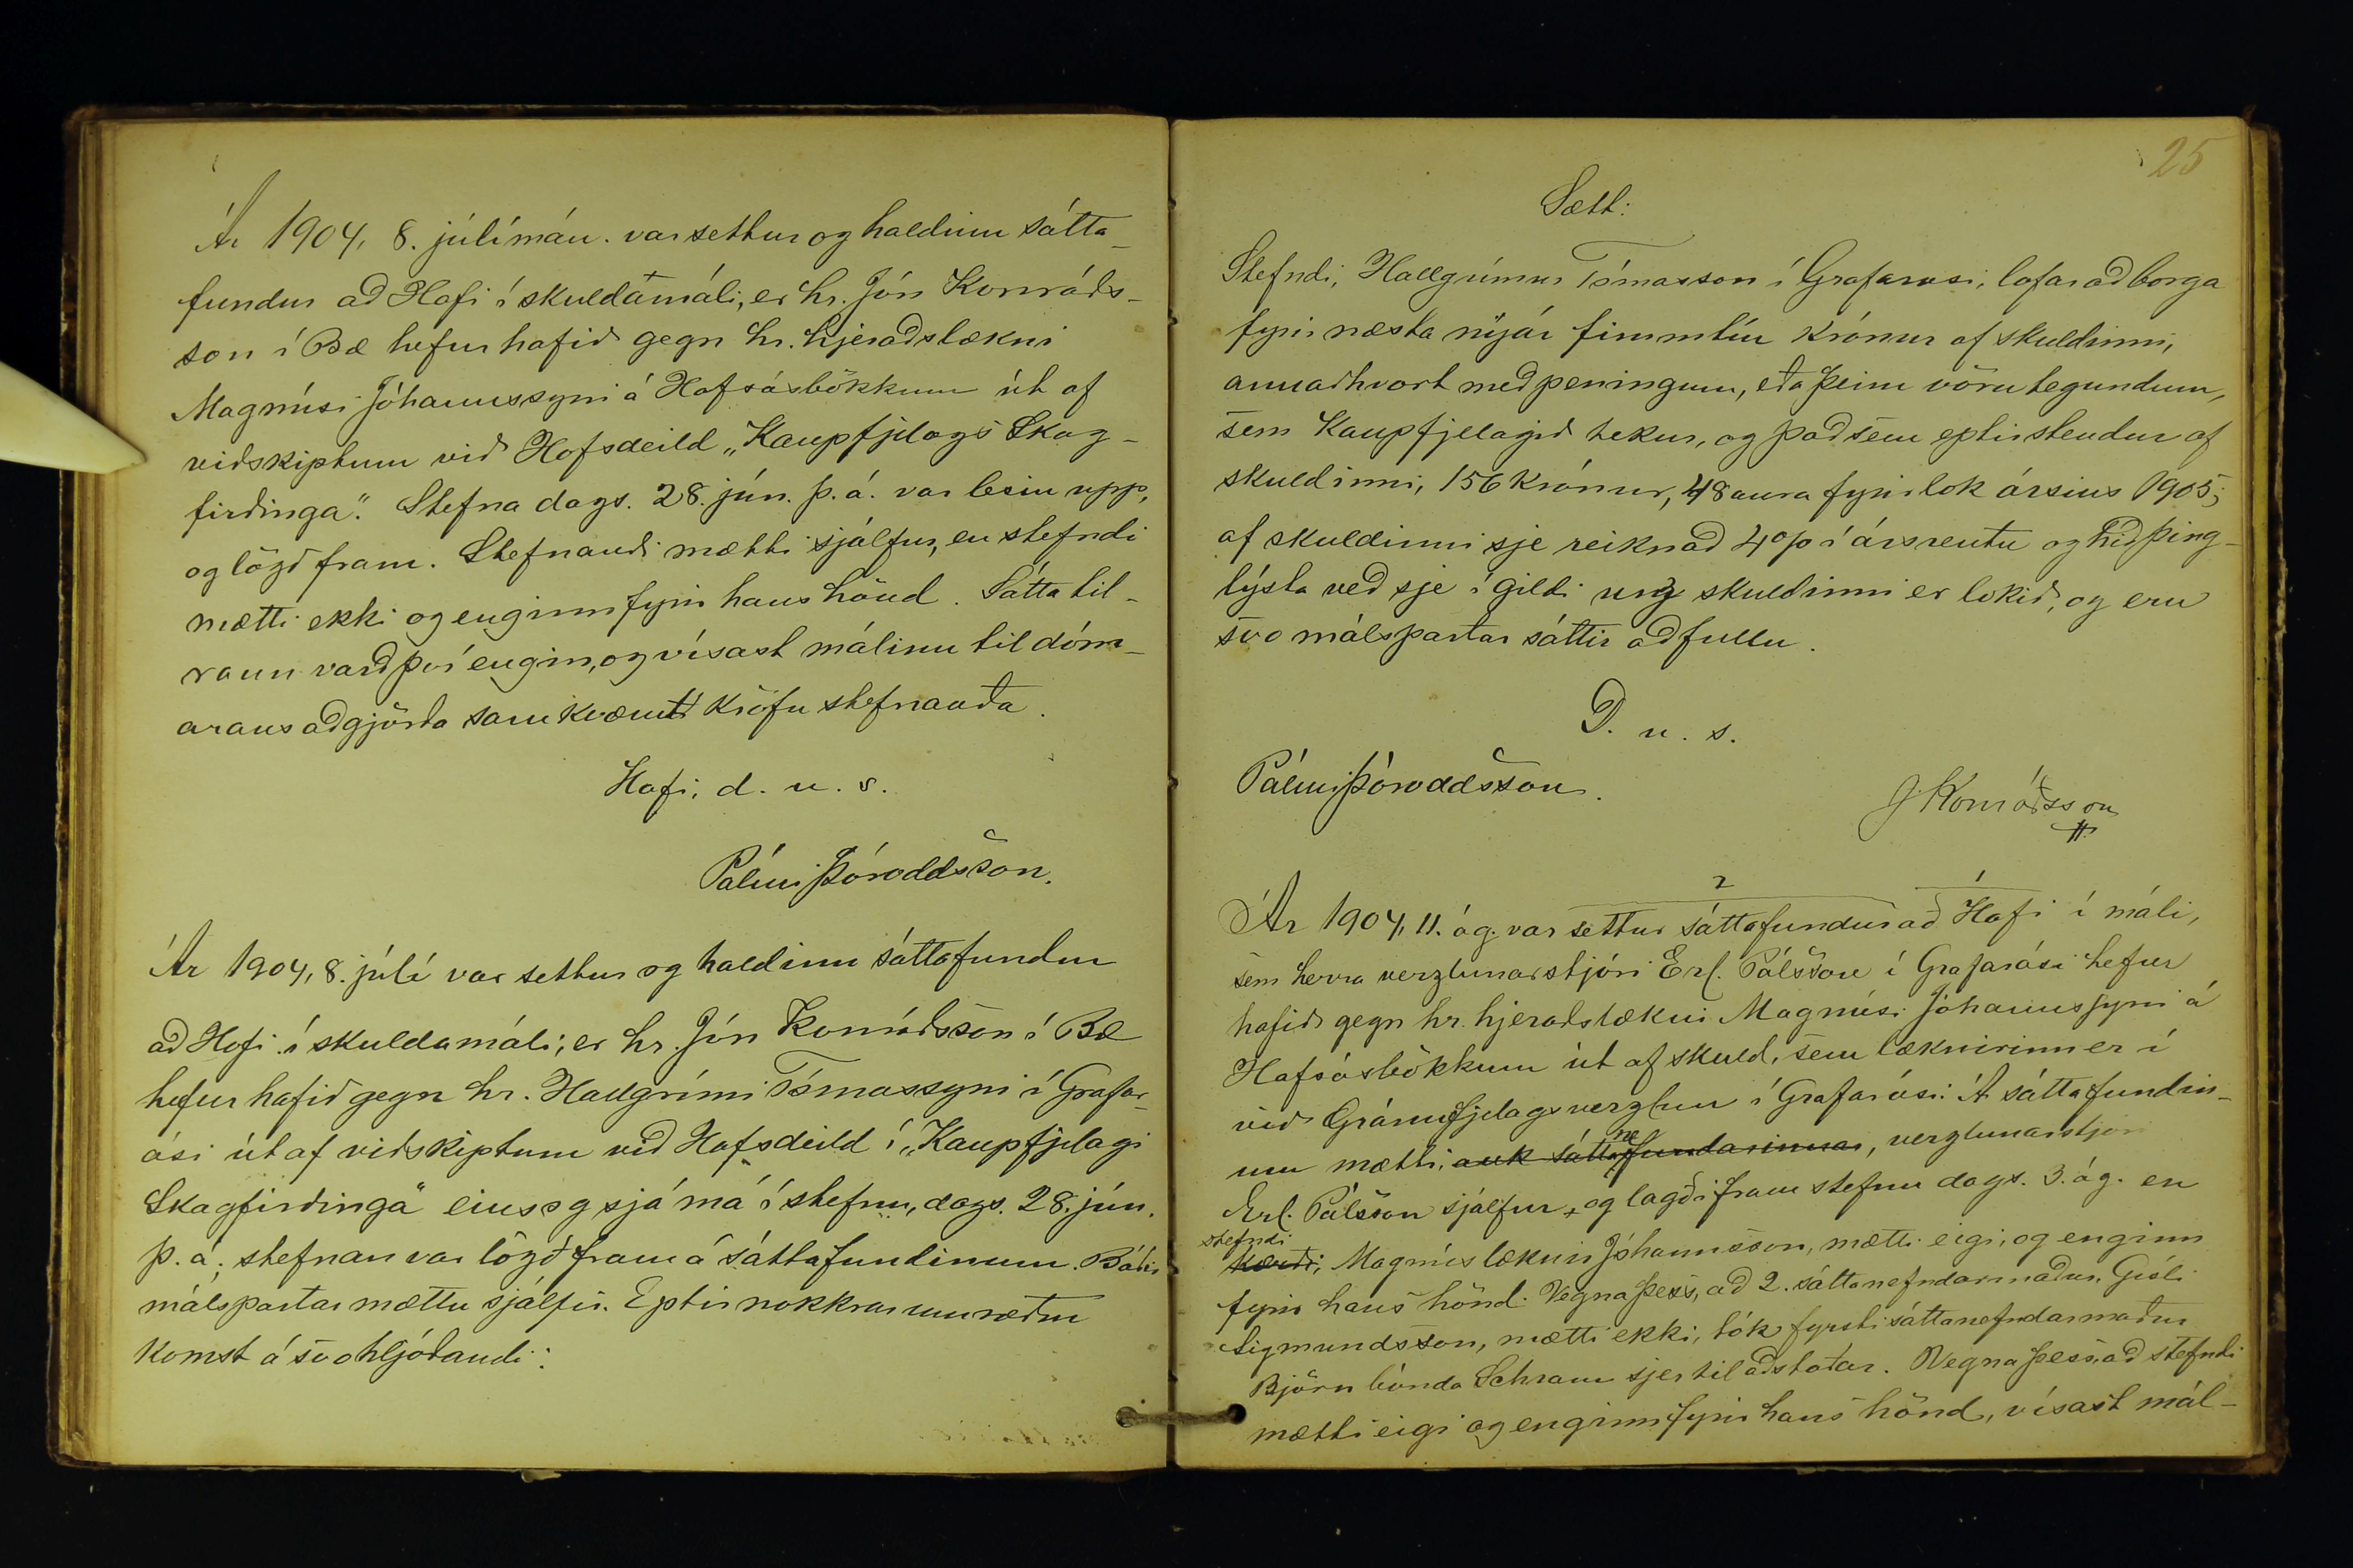 Ár 1904, 8. júlímán. var settur og haldinn sátta-
fundur að Hofi í skuldamáli, er hr. Jón Konráðs-
son í Bæ hefur hafið gegn hr. hjeraðslækni
Magnúsi Jóhannssyni á Hofsósbökkum út af
viðskiptum við Hofsdeild „Kaupfjelags Skag-
firðinga". Stefna dags. 28. jún. þ. á. var lesin upp,
og lögð fram. Stefnandi mætti sjálfur, en stefndi
mætti ekki og enginn fyrir hans hönd. Sátta til-
raun varð því engin, og vísast málinu til dóm-
arans aðgjörða samkvæmt kröfu stefnanda.
Hofi, d. u. s.
Pálmi Þóroddsson.
Ár 1904, 8. júlí var settur og haldinn sáttafundur
að Hofi í skuldamáli, er hr. Jón Konráðsson í Bæ
hefur hafið gegn hr. Hallgrími Tómassyni í Grafar-
ósi út af viðskiptum við Hofsdeild í „Kaupfjelagi
Skagfirðinga" eins og sjá má í stefnu, dags. 28. jún.
þ. á., stefnan var lögð fram á sáttafundinum. Báðir
málspartar mættu sjálfir. Eptir nokkrar umræður
komst á svo hljóðandi:
25
Sætt:
Stefndi, Hallgrímur Tómasson í Grafarósi, lofar að borga
fyrir næsta nýjár fimmtíu krónur af skuldinni,
annaðhvort með peningum, eða þeim vörutegundum,
sem Kaupfjelagið tekur, og það sem eptirstendur af
skuldinni, 156 krónur, 48 aura fyrir lok ársins 1905;
af skuldinni sje reiknað 4% í ársrentu og hið þing-
lýsta veð sje í gildi unz skuldinni er lokið, og eru
svo málspartar sáttir að fullu.
D. u. s.
Pálmi Þóroddsson.
J Konráðsson
2 1
Ár 1904, 11. ág. var settur sáttafundur að Hofi í máli,
sem herra verzlunarstjóri Erl. Pálsson í Grafarósi hefur
hafið gegn hr. hjeraðslækni Magnúsi Jóhannssyni á
Hofsósbökkum út af skuld, sem læknirinn er í
við Gránufjelagsverzlun í Grafarósi. Á sáttafundin-
um mætti, auk sáttanefndarinnar, verzlunarstjóri
Erl. Pálsson sjálfur, og lagði fram stefnu dags. 3. ág. en
stefndi
kærði, Magnús læknir Jóhannsson, mætti eigi, og enginn
fyrir hans hönd. Vegna þess, að 2. sáttanefndarmaður, Gísli
Sigmundsson, mætti ekki, tók fyrsti sáttanefndarmaður
Björn bónda Schram sjer til aðstoðar. Vegna þess, að stefndi
mætti eigi og enginn fyrir hans hönd, vísast mál-